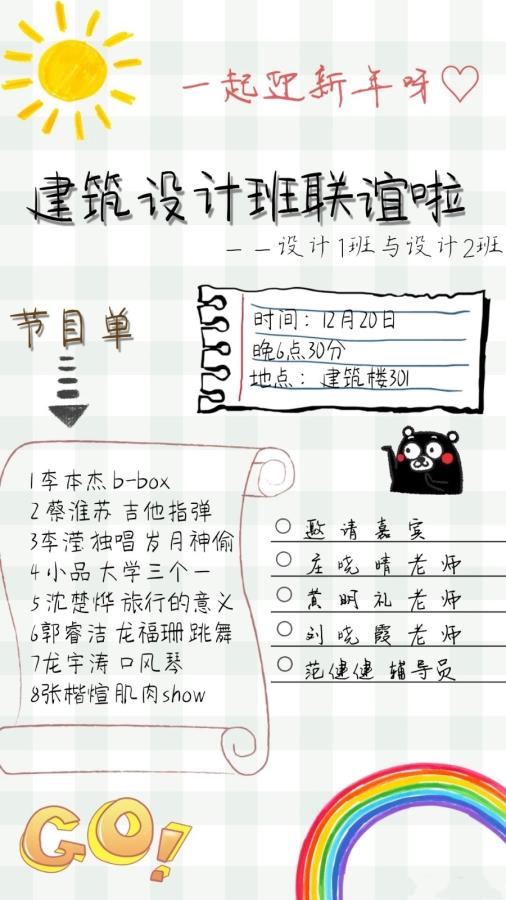 一起迎新年呀♡
建筑设计班联谊啦
——设计1班与设计2班
节目单
时间：12月20日
晚6点30分
地点：建筑楼301
1李本杰 b-box
2蔡淮苏 吉他指弹
3李滢 独唱 岁月神偷
4小品 大学三个一
5沈楚烨 旅行的意义
6郭睿洁 龙福珊 跳舞
7龙宇涛 口风琴
8张楷煊 肌肉show
邀请嘉宾
庄晓晴老师
黄明礼老师
刘晓霞老师
范健健 辅导员
GO!